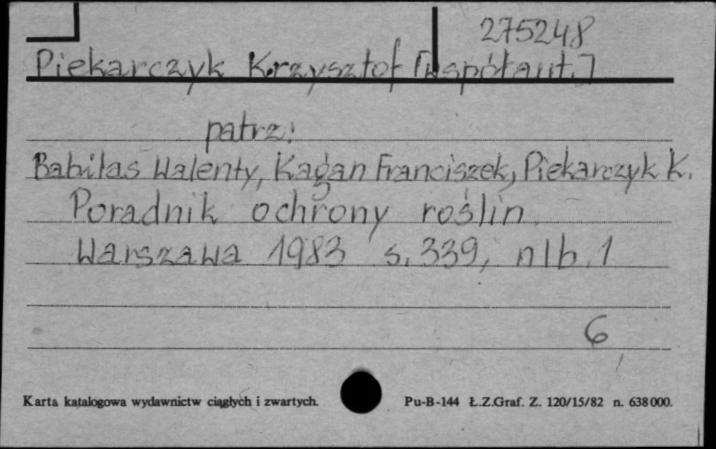 275248
Piekarczyk Krzysztof [współaut.]
patrz:
Babilas Walenty, Kagan Franciszek, Piekarczyk K.
Poradnik ochrony roślin
Warszawa 1983 s. 339, nlb. 1
6
Karta katalogowa wydawnictw ciągłych i zwartych. Pu-B-144 Ł.Z.Graf. Z. 120/15/82 n. 638 000.